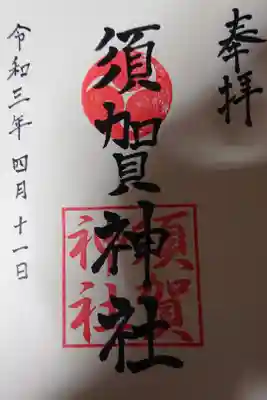 奉拝
須賀神社
須賀
神社
令和三年 四月 十一日